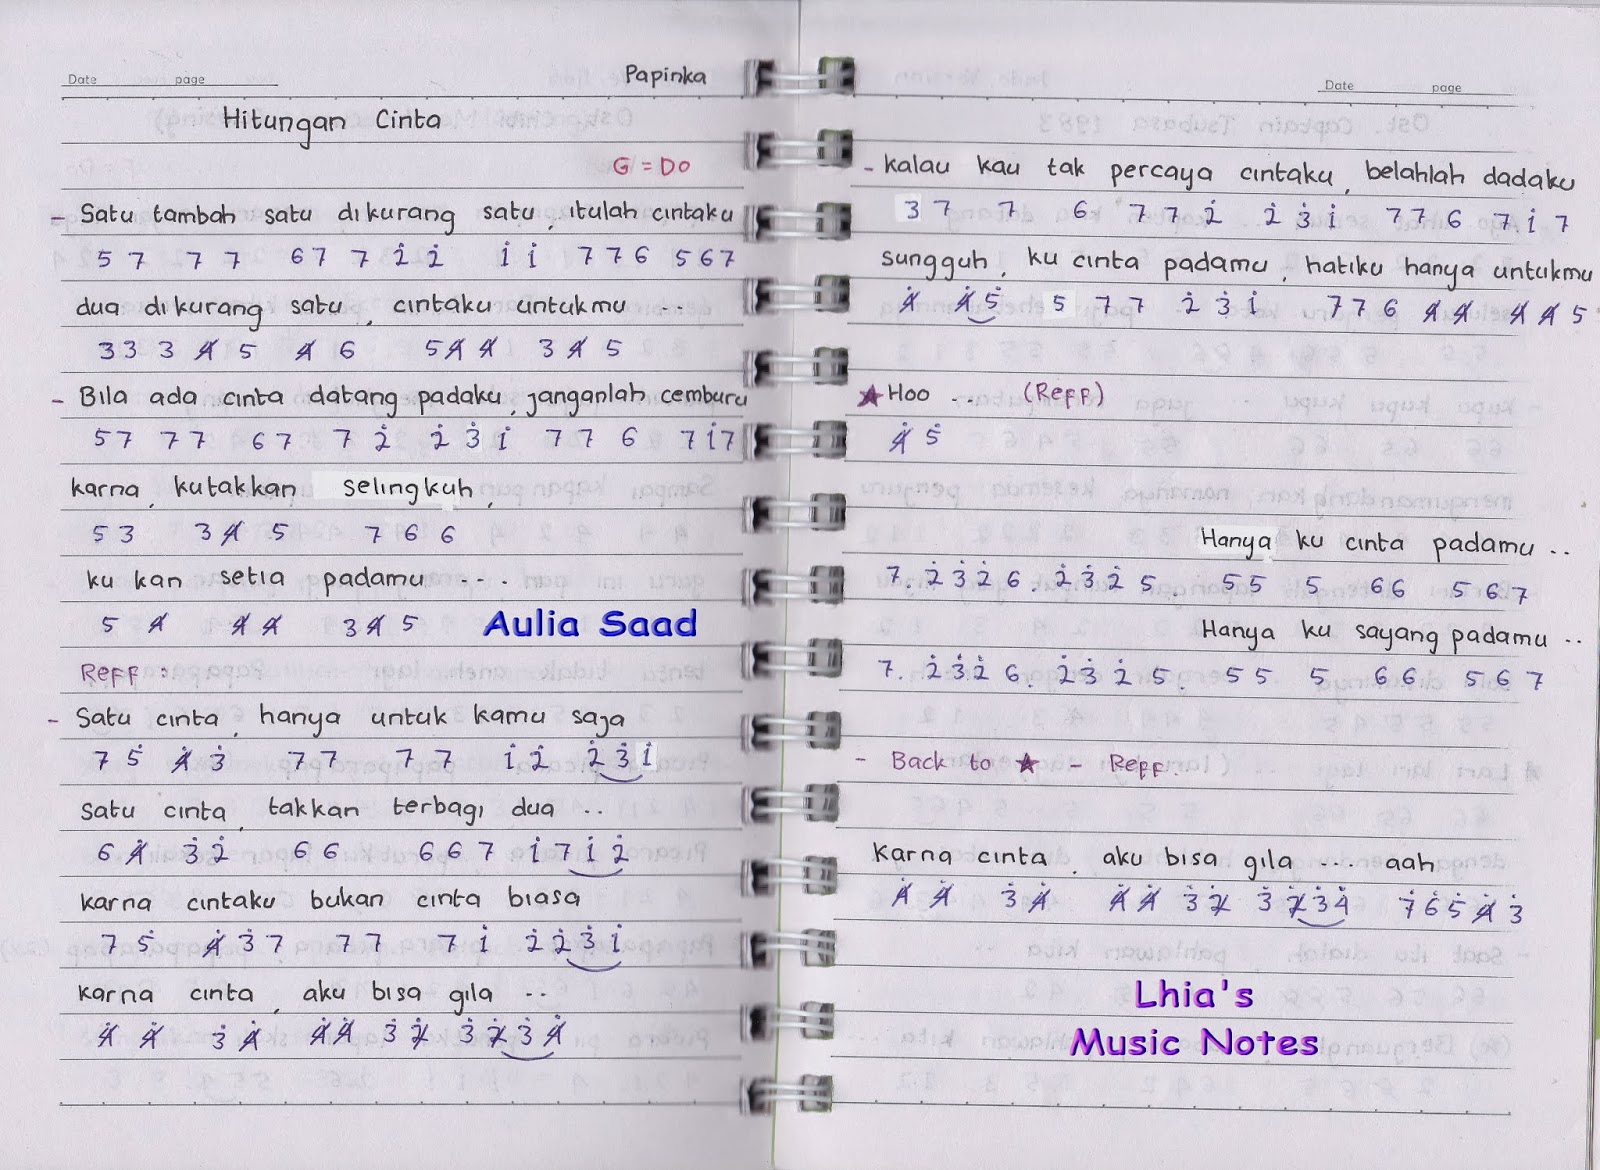 Date page
Papinka
Hitungan Cinta
G = Do
- Satu tambah satu dikurang satu, itulah cintaku
5 7 7 7 6 7 7 2̇ 2̇ 1̇ 1̇ 7 7 6 5 6 7
dua dikurang satu, cintaku untukmu ...
3 3 3 4̸ 5 4̸ 6 5 4̸ 4̸ 3 4̸ 5
- Bila ada cinta datang padaku, janganlah cemburu
5 7 7 7 6 7 7 2̇ 2̇ 3̇ 1̇ 7 7 6 7 1̇ 7
karna, kutakkan selingkuh,
5 3 3 4̸ 5 7 6 6
ku kan setia padamu ....
5 4̸ 4̸ 4̸ 3 4̸ 5
Aulia Saad
Reff :
- Satu cinta, hanya untuk kamu saja
7 5̇ 4̸̇ 3̇ 7 7 7 7 1̇ 2̇ 2̇ 3̇ 1̇
Satu cinta, takkan terbagi dua ..
6 4̸̇ 3̇ 2̇ 6 6 6 6 7 1̇ 7 1̇ 2̇
karna cintaku bukan cinta biasa
7 5̇ 4̸̇ 3̇ 7 7 7 7 1̇ 2̇ 2̇ 3̇ 1̇
karna cinta, aku bisa gila ..
4̸̇ 4̸̇ 3̇ 4̸̇ 4̸̇ 4̸̇ 3̇ 2̸̇ 3̇ 2̸̇ 3̇ 4̸̇
Date page
- Kalau kau tak percaya cintaku, belahlah dadaku
3 7 7 6 7 7 2̇ 2̇ 3̇ 1̇ 7 7 6 7 1̇ 7
sungguh, ku cinta padamu, hatiku hanya untukmu
4̸̇ 4̸̇ 5̇ 5 7 7 2̇ 3̇ 1̇ 7 7 6 4̸ 4̸ 4̸ 4̸ 5
★ Hoo ... (Reff)
4̸̇ 5̇
Hanya ku cinta padamu ..
7. 2̇ 3̇ 2̇ 6. 2̇ 3̇ 2̇ 5. 5 5 5 6 6 5 6 7
Hanya ku sayang padamu ..
7. 2̇ 3̇ 2̇ 6. 2̇ 3̇ 2̇ 5. 5 5 5 6 6 5 6 7
- Back to ★ - Reff.
Karna cinta, aku bisa gila .... aah
4̸̇ 4̸̇ 3̇ 4̸̇ 4̸̇ 4̸̇ 3̇ 2̸̇ 3̇ 2̸̇ 3̇ 4̸̇ 7̇ 6̇ 5̇ 4̸̇ 3̇
Lhia's
Music Notes